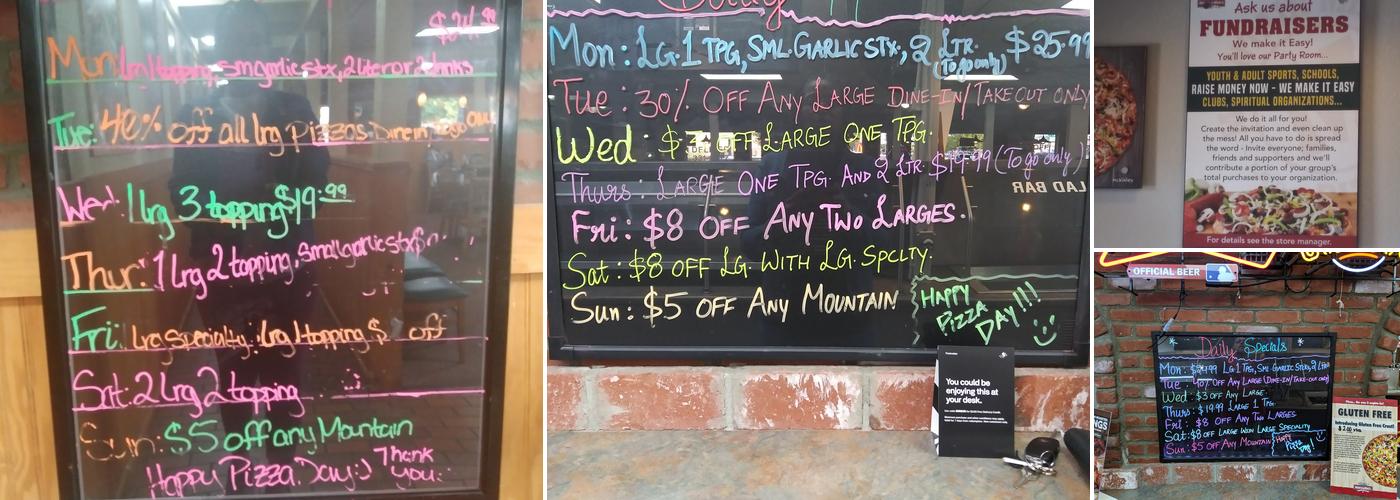 $24.99
Mon: 1 topping, sm garlic stx, 2 liter or 2 drinks
Tue: 40% off all lrg pizzas Dine in To go Only
Wed: 1 lrg 3 topping $19.99
Thur: 1 lrg 2 topping, small garlic stx $
Fri: Lrg Specialty, lrg 1 topping $ off
Sat: 2 Lrg 2 topping
Sun: $5 off any Mountain
Happy Pizza Day :) Thank
you
Daily
Mon: LG. 1 TPG, SML. GARLIC STX, 2 LTR. $25.99
(To go only)
Tue: 30% OFF ANY LARGE DINE-IN/TAKE OUT ONLY
Wed: $3 OFF LARGE ONE TPG.
Thurs: LARGE ONE TPG. AND 2 LTR. $19.99 (To go only)
LAD BAR
Fri: $8 OFF ANY TWO LARGES.
Sat: $8 OFF LG. WITH LG. SPCLTY.
Sun: $5 OFF ANY MOUNTAIN
HAPPY
PIZZA
DAY!!!
You could be
enjoying this at
your desk.
Ask us about
FUNDRAISERS
We make it Easy!
You'll love our Party Room...
YOUTH & ADULT SPORTS, SCHOOLS,
RAISE MONEY NOW - WE MAKE IT EASY
CLUBS, SPIRITUAL ORGANIZATIONS...
We do it all for you!
Create the invitation and even clean up
the mess! All you have to do is spread
the word - Invite everyone; families,
friends and supporters and we'll
contribute a portion of your group's
total purchases to your organization.
For details see the store manager.
OFFICIAL BEER
Daily Specials
Mon: LG 1 TPG, SML GARLIC STICKS, 2 LTR
Tue: 40% OFF ANY LARGE (DINE-IN/TAKE-OUT ONLY)
Wed: $3 OFF ANY LARGE
Thurs: $19.99 LARGE 1 TPG.
Fri: $8 OFF ANY TWO LARGES
Sat: $8 OFF LARGE W/ LARGE SPECIALTY
Sun: $5 OFF ANY MOUNTAIN
HAPPY
Pizza
Day!
GLUTEN FREE
Introducing Gluten Free Crust!
$2.00